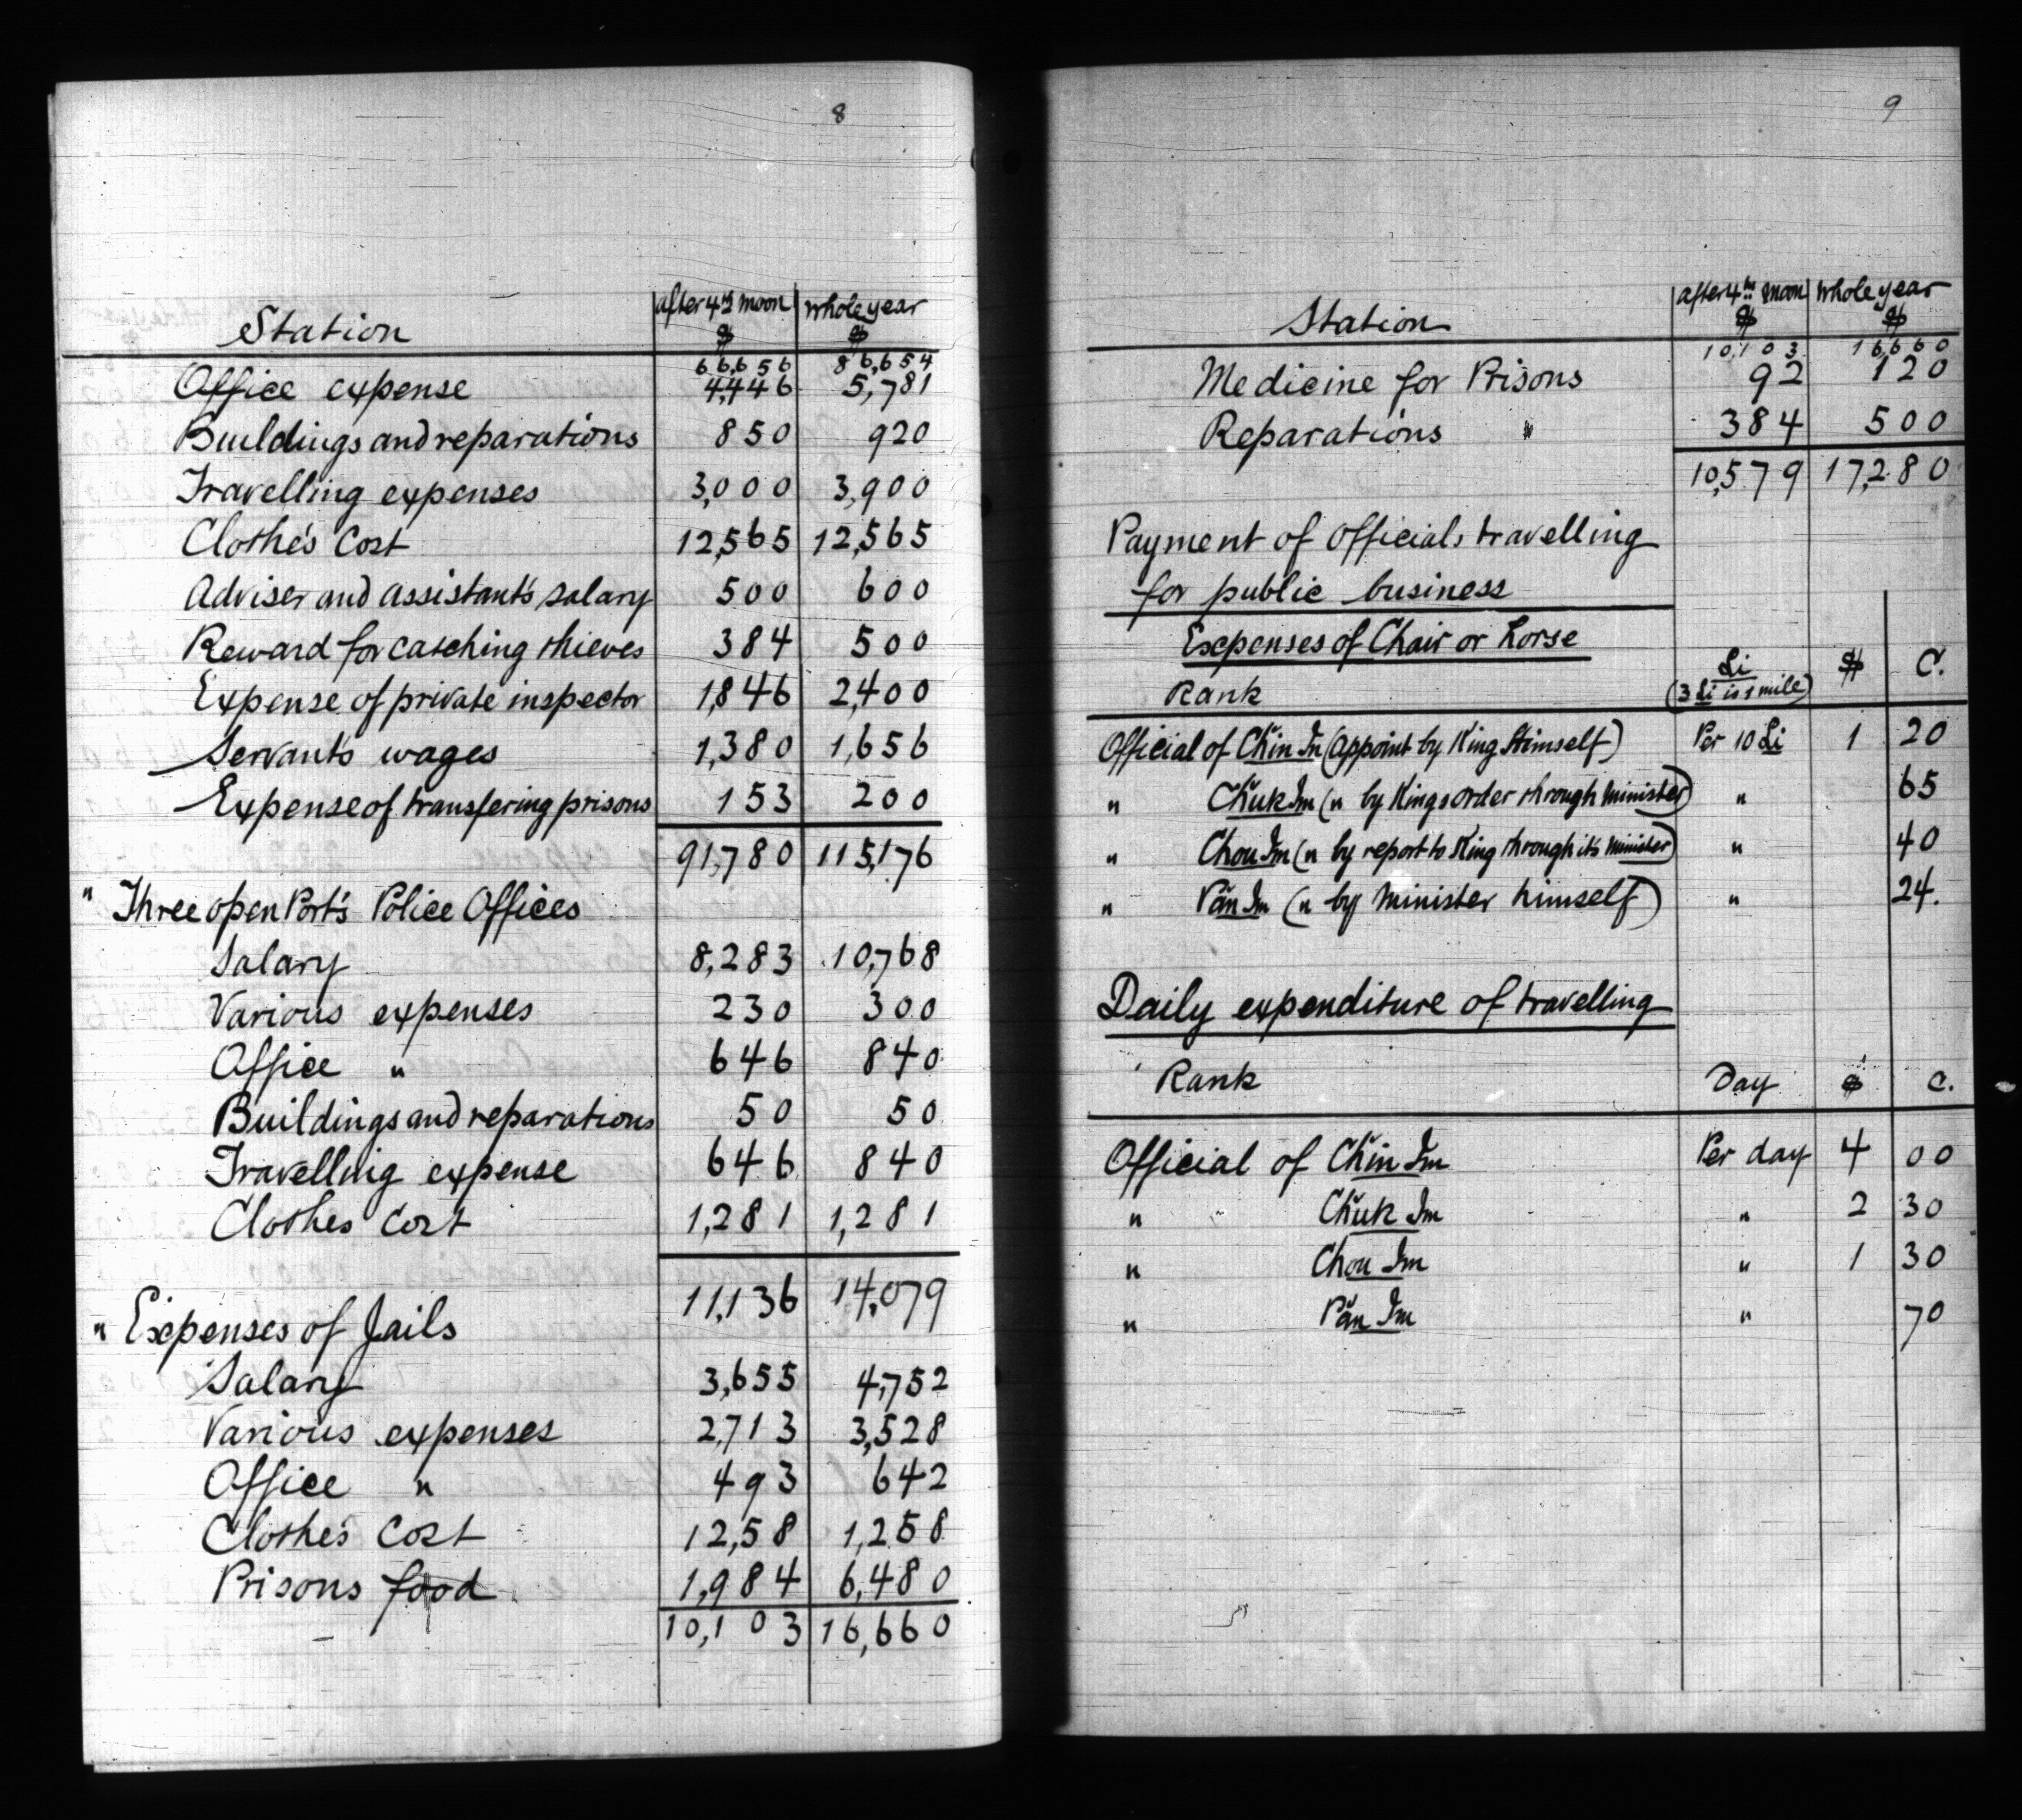 8
Station after 4th moon whole year
$ $
66,656 86,654
Office expense 4,446 5,781
Buildings and reparations 850 920
Travelling expenses 3,000 3,900
Clothe's Cost 12,565 12,565
Adviser and assistant's salary 500 600
Reward for catching thieves 384 500
Expense of private inspector 1,846 2,400
Servant's wages 1,380 1,656
Expense of transfering prisons 153 200
91,780 115,176
" Three open Port's Police Offices
Salary 8,283 10,768
Various expenses 230 300
Office " 646 840
Buildings and reparations 50 50
Travelling expense 646 840
Clothes Cost 1,281 1,281
11,136 14,079
" Expenses of Jails
Salary 3,655 4,752
Various expenses 2,713 3,528
Office " 493 642
Clothe's Cost 12,58 1,258
Prisons food 1,984 6,480
10,103 16,660
9
Station after 4th moon whole year
$ $
10,103 16,660
Medicine for Prisons 92 120
Reparations " 384 500
10,579 17,280
Payment of Officials travelling
for public business
Expenses of Chair or horse
Rank Li (3 Li is 1 mile) $ C.
Official of Chin Im (appoint by King Himself) Per 10 Li 1 20
" Chŭk Im (" by Kings order through Minister) " 65
" Chou Im (" by report to King through it's Minister) " 40
" Păn Im (" by Minister himself) " 24.
Daily expenditure of travelling
Rank Day $ C.
Official of Chin Im Per day 4 00
" Chŭk Im " 2 30
" Chou Im " 1 30
" Păn Im " 70